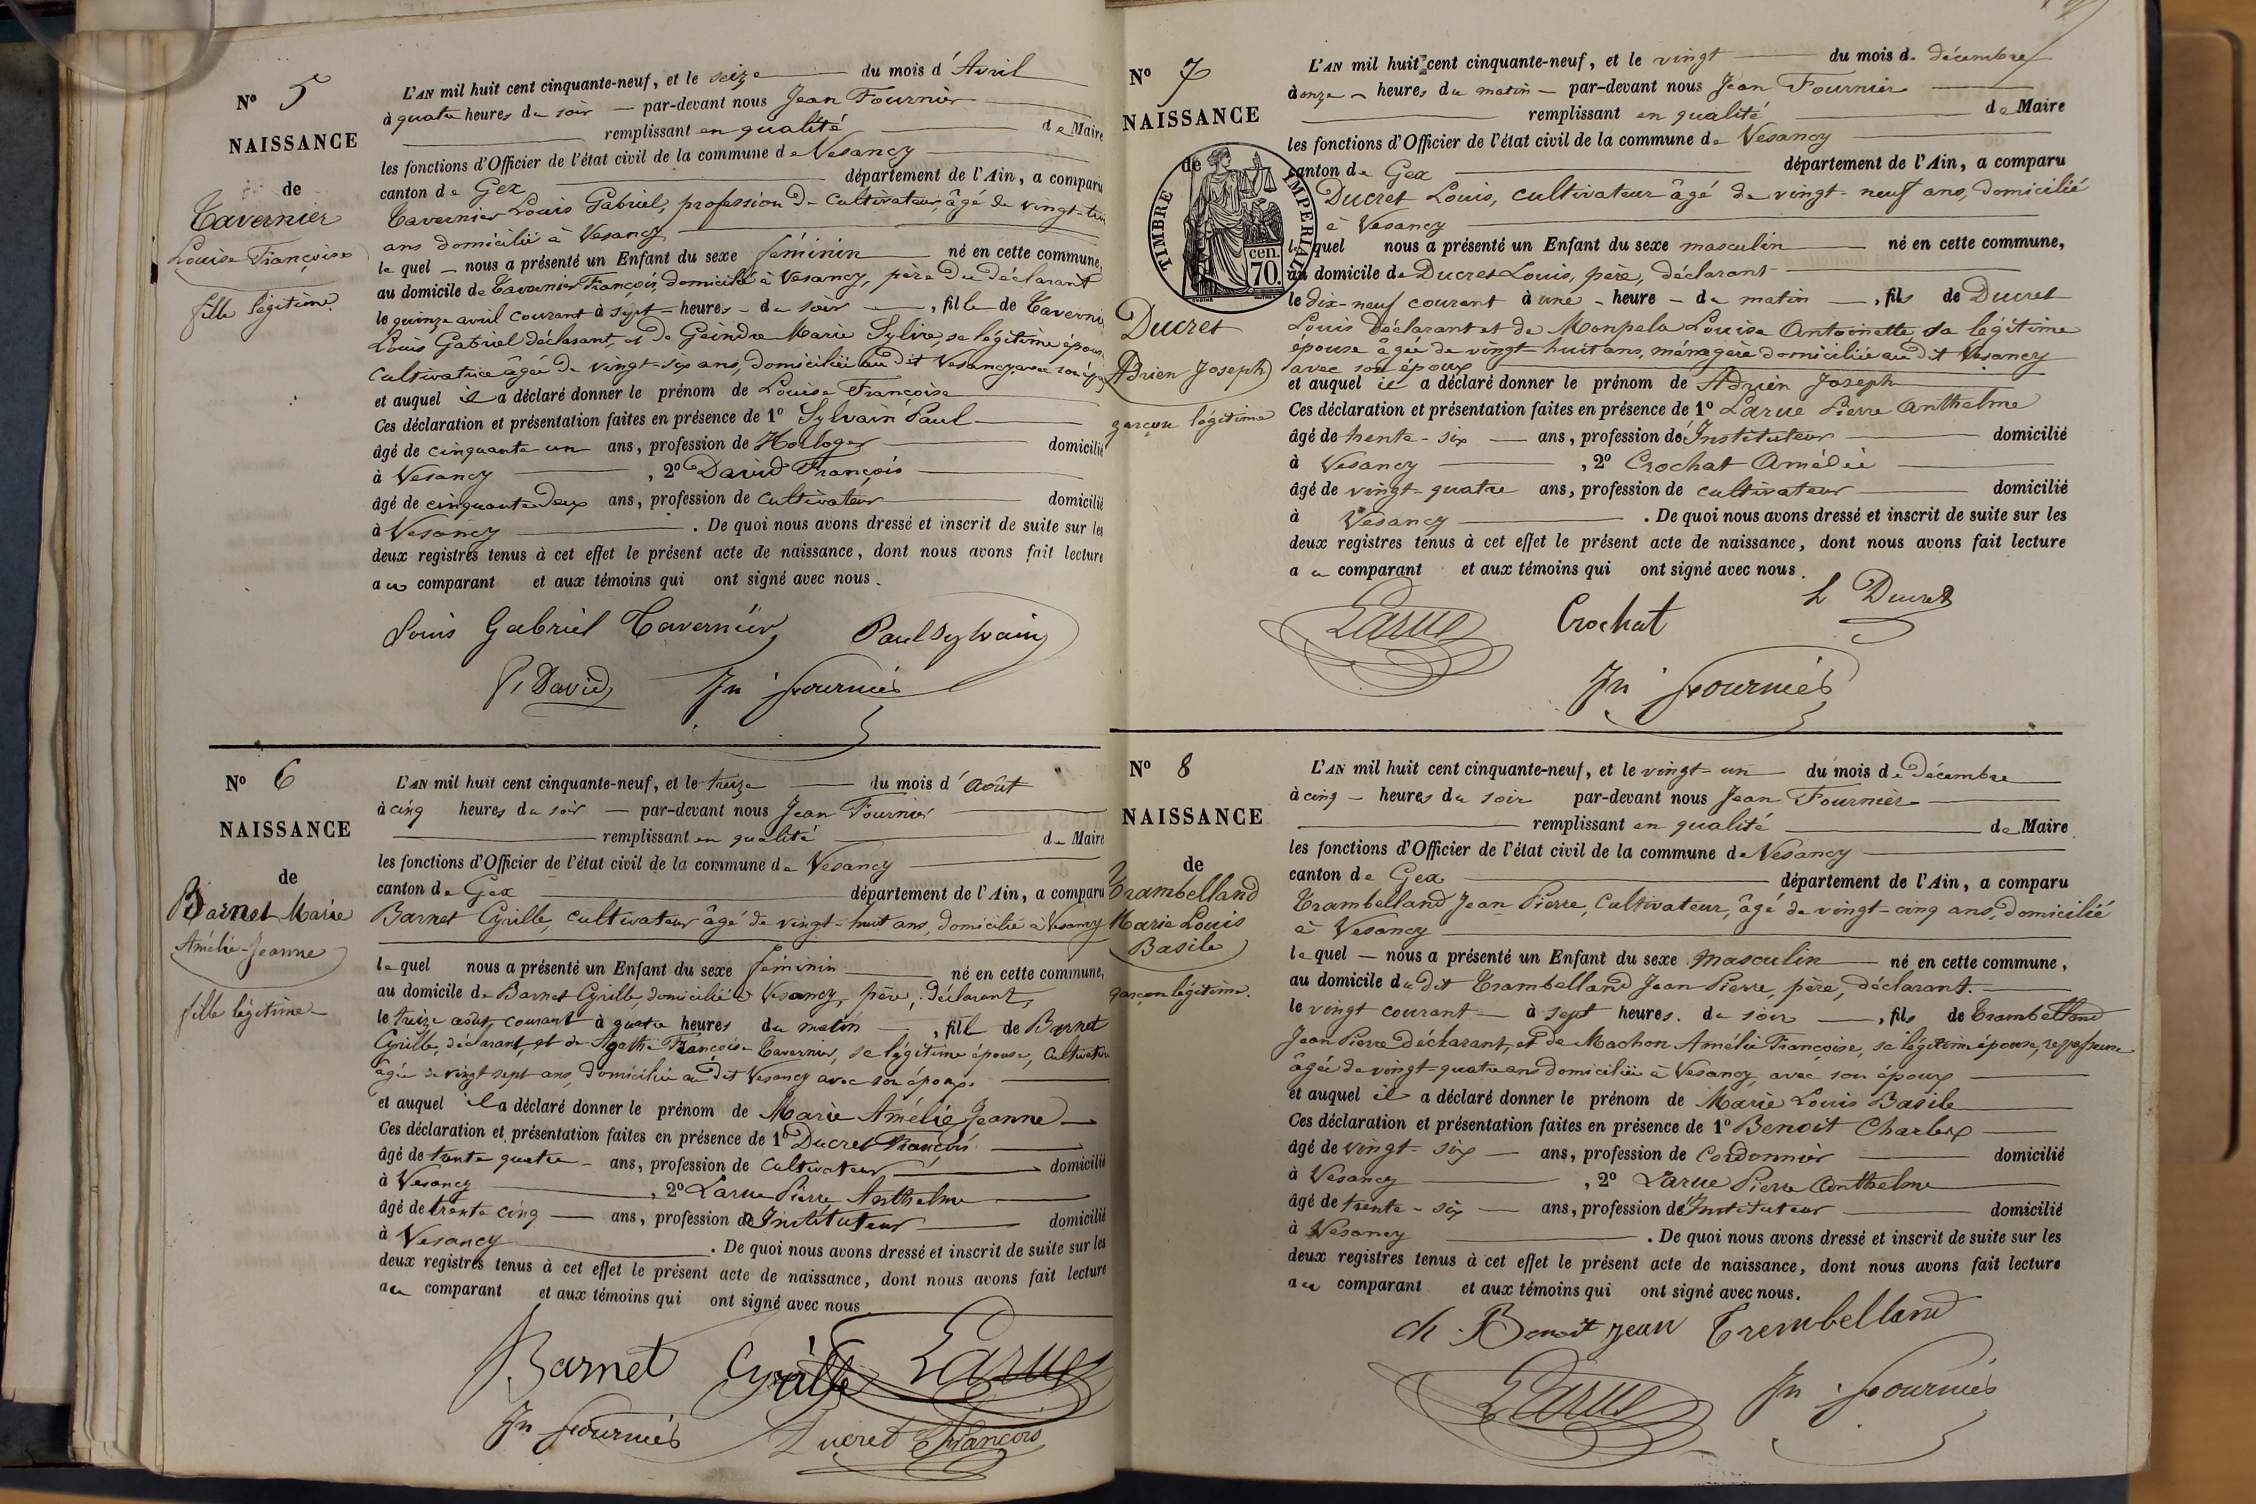 N° 5
NAISSANCE
de
Tavernier
Louise Françoise
fille légitime.
L'AN mil huit cent cinquante-neuf, et le seize du mois d'Avril
à quatre heures du soir par-devant nous Jean Fournier
remplissant en qualité de Maire
les fonctions d'Officier de l'état civil de la commune de Vesancy
canton de Gex département de l'Ain, a comparu
Tavernier Louis Gabriel, profession de cultivateur, âgé de vingt-
ans domicilié à Vesancy
lequel nous a présenté un Enfant du sexe féminin né en cette commune,
au domicile de Tavernier François, domicilié à Vesancy, père du déclarant
le quinze avril courant à sept heures du soir, fille de Tavernier
Louis Gabriel déclarant, et de Geindre Marie Sylvie, sa légitime épouse
cultivatrice âgée de vingt-six ans, domiciliée au dit Vesancy avec son époux
et auquel il a déclaré donner le prénom de Louise Françoise
Ces déclaration et présentation faites en présence de 1° Sylvain Paul
âgé de cinquante un ans, profession de Horloger domicilié
à Vesancy, 2° David François
âgé de cinquante deux ans, profession de cultivateur domicilié
à Vesancy. De quoi nous avons dressé et inscrit de suite sur les
deux registres tenus à cet effet le présent acte de naissance, dont nous avons fait lecture
au comparant et aux témoins qui ont signé avec nous.
Louis Gabriel Tavernier Paul Sylvain
F. David Jn Fournier
N° 6
NAISSANCE
de
Barnet Marie
Amélie-Jeanne
fille légitime
L'AN mil huit cent cinquante-neuf, et le treize du mois d'août
à cinq heures du soir par-devant nous Jean Fournier
remplissant en qualité de Maire
les fonctions d'Officier de l'état civil de la commune de Vesancy
canton de Gex département de l'Ain, a comparu
Barnet Cyrille, cultivateur âgé de vingt-huit ans, domicilié à Vesancy
lequel nous a présenté un Enfant du sexe féminin né en cette commune,
au domicile de Barnet Cyrille, domicilié à Vesancy, père, déclarant,
le treize août, courant à quatre heures du matin, fille de Barnet
Cyrille, déclarant, et de Agathe Françoise Tavernier, sa légitime épouse, cultivatrice
âgée de vingt sept ans, domiciliée au dit Vesancy avec son époux.
et auquel il a déclaré donner le prénom de Marie Amélie Jeanne
Ces déclaration et présentation faites en présence de 1° Ducret François
âgé de trente quatre ans, profession de cultivateur domicilié
à Vesancy, 2° Larue Pierre Anthelme
âgé de trente cinq ans, profession d'Instituteur domicilié
à Vesancy. De quoi nous avons dressé et inscrit de suite sur les
deux registres tenus à cet effet le présent acte de naissance, dont nous avons fait lecture
au comparant et aux témoins qui ont signé avec nous
Barnet Cyrille Larue
Jn Fournier Ducret François
N° 7
NAISSANCE
de
TIMBRE IMPERIAL
70 cen.
Ducret
Adrien Joseph
garçon légitime
L'AN mil huit cent cinquante-neuf, et le vingt du mois de décembre
à onze heures du matin par-devant nous Jean Fournier
remplissant en qualité de Maire
les fonctions d'Officier de l'état civil de la commune de Vesancy
canton de Gex département de l'Ain, a comparu
Ducret Louis, cultivateur âgé de vingt-neuf ans, domicilié
à Vesancy
lequel nous a présenté un Enfant du sexe masculin né en cette commune,
au domicile de Ducret Louis, père, déclarant
le dix-neuf courant à une heure du matin, fils de Ducret
Louis déclarant et de Monpela Louise Antoinette, sa légitime
épouse âgée de vingt-huit ans, ménagère domiciliée au dit Vesancy
avec son époux
et auquel il a déclaré donner le prénom de Adrien Joseph
Ces déclaration et présentation faites en présence de 1° Larue Pierre Anthelme
âgé de trente-six ans, profession d'Instituteur domicilié
à Vesancy, 2° Crochat Amédée
âgé de vingt-quatre ans, profession de cultivateur domicilié
à Vesancy. De quoi nous avons dressé et inscrit de suite sur les
deux registres tenus à cet effet le présent acte de naissance, dont nous avons fait lecture
au comparant et aux témoins qui ont signé avec nous.
Larue Crochat L Ducret
Jn Fournier
N° 8
NAISSANCE
de
Trambelland
Marie Louis
Basile
garçon légitime.
L'AN mil huit cent cinquante-neuf, et le vingt-un du mois de décembre
à cinq heures du soir par-devant nous Jean Fournier
remplissant en qualité de Maire
les fonctions d'Officier de l'état civil de la commune de Vesancy
canton de Gex département de l'Ain, a comparu
Trambelland Jean Pierre, cultivateur, âgé de vingt-cinq ans, domicilié
à Vesancy
lequel nous a présenté un Enfant du sexe masculin né en cette commune,
au domicile du dit Trambelland Jean Pierre, père, déclarant.
le vingt courant à sept heures du soir, fils de Trambelland
Jean Pierre déclarant, et de Machon Amélie Françoise, sa légitime épouse, repasseuse
âgée de vingt-quatre ans domiciliée à Vesancy, avec son époux
et auquel il a déclaré donner le prénom de Marie Louis Basile
Ces déclaration et présentation faites en présence de 1° Benoit Charles
âgé de vingt-six ans, profession de Cordonnier domicilié
à Vesancy, 2° Larue Pierre Anthelme
âgé de trente-six ans, profession d'Instituteur domicilié
à Vesancy. De quoi nous avons dressé et inscrit de suite sur les
deux registres tenus à cet effet le présent acte de naissance, dont nous avons fait lecture
au comparant et aux témoins qui ont signé avec nous.
ch. Benoit jean Trembelland
Larue Jn Fournier